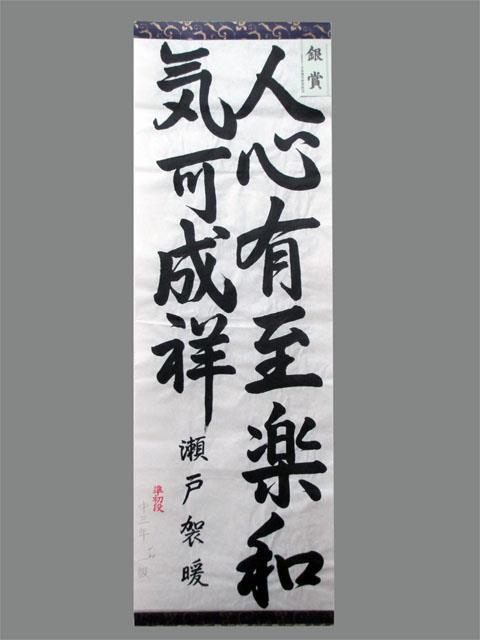 銀賞
人心有至楽和
気可成祥
瀬戸袈暖
準初段